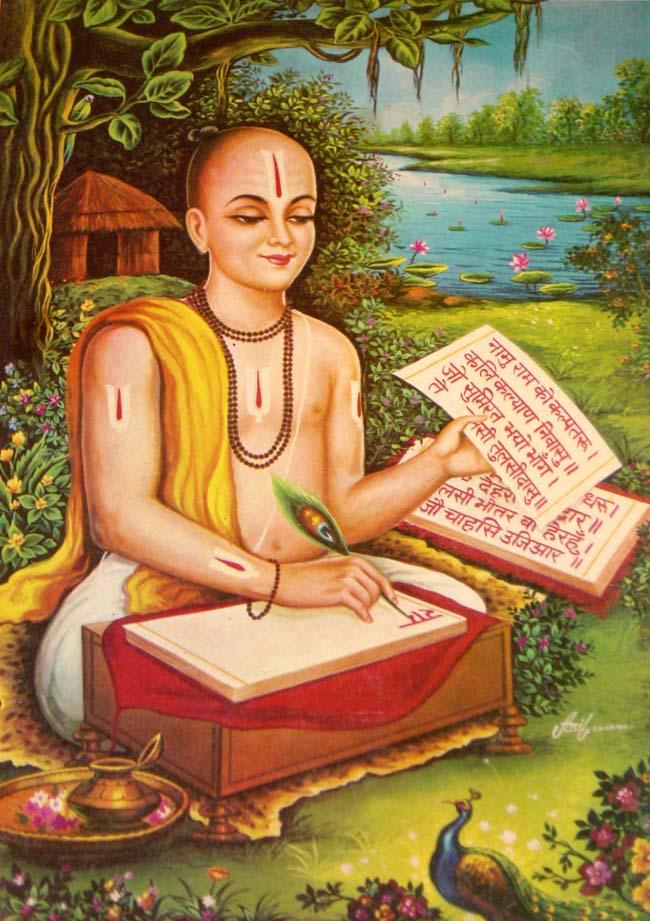 नामु राम को कल्पतरू।
कलि कल्याण निवासु॥
जौ सुमिरत भयो भाँग।
तुलसीदासु॥
धरू।
देहरी
भीतर बा हेरहुँ।
जौ चाहासि उजिआर ॥
राम